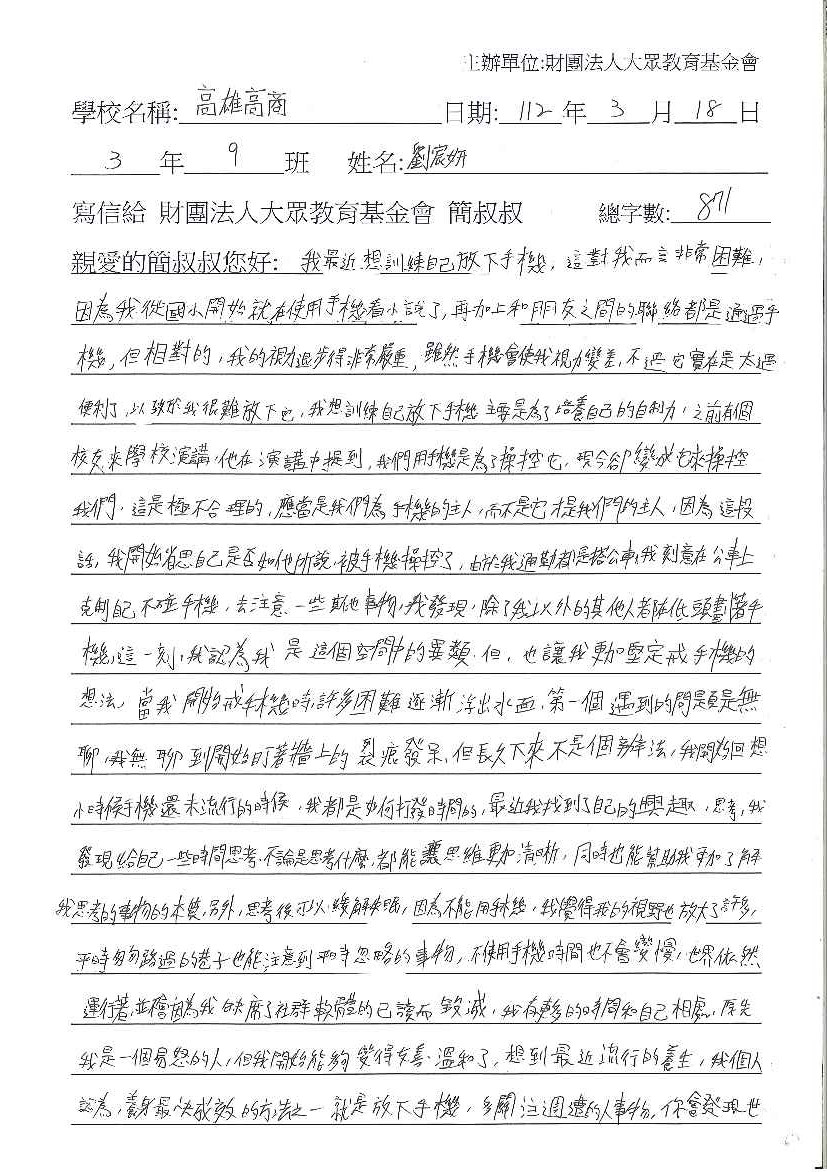 主辦單位:財團法人大眾教育基金會
學校名稱: 高雄高商 日期: 112 年 3 月 18 日
3 年 9 班 姓名: 劉宸妍
寫信給 財團法人大眾教育基金會 簡叔叔 總字數: 871
親愛的簡叔叔您好: 我最近想訓練自己放下手機，這對我而言非常困難，
因為我從國小開始就在使用手機看小說了，再加上和朋友之間的聯絡都是通過手
機，但相對的，我的視力退步得非常嚴重，雖然手機會使我視力變差，不過它實在是太過
便利了，以致於我很難放下它，我想訓練自己放下手機主要是為了培養自己的自制力，之前有個
校友來學校演講，他在演講中提到，我們用手機是為了操控它，現今卻變成它來操控
我們，這是極不合理的，應當是我們為手機的主人，而不是它才是我們的主人，因為這段
話，我開始省思自己是否如他所說，被手機操控了，由於我通勤都是搭公車，我刻意在公車上
克制自己不碰手機，去注意一些其他事物，我發現，除了我以外的其他人都在低頭畫著手
機，這一刻，我認為我是這個空間中的異類，但，也讓我更加堅定戒手機的
想法，當我開始戒手機時，許多困難逐漸浮出水面，第一個遇到的問題是無
聊，我無聊到開始盯著牆上的裂痕發呆，但長久下來不是個辦法，我開始回想
小時候手機還未流行的時候，我都是如何打發時間的，最近我找到了自己的興趣，思考，我
發現給自己一些時間思考，不論是思考什麼，都能讓思維更加清晰，同時也能幫助我更加了解
我思考的事物的本質，另外，思考後可以緩解失眠，因為不能用手機，我覺得我的視野也放大了許多，
平時匆匆路過的巷子也能注意到平時忽略的事物，不使用手機時間也不會變慢，世界依然
運行著，並不會因為我缺席了社群軟體的已讀而毀滅，我有更多的時間和自己相處，原先
我是一個易怒的人，但我開始能夠變得友善、溫和了，想到最近流行的養生，我個人
認為，養身最快成效的方法之一就是放下手機，多關注週遭的人事物，你會發現世